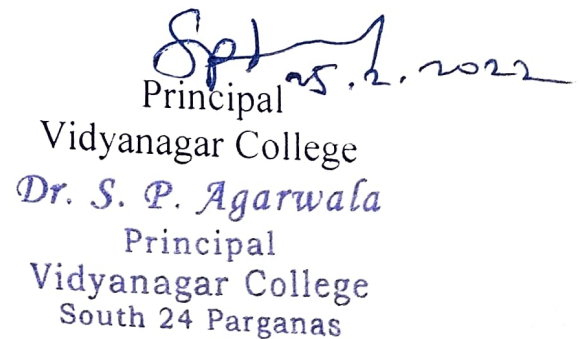 25.2.2022
Principal
Vidyanagar College
Dr. S. P. Agarwala
Principal
Vidyanagar College
South 24 Parganas